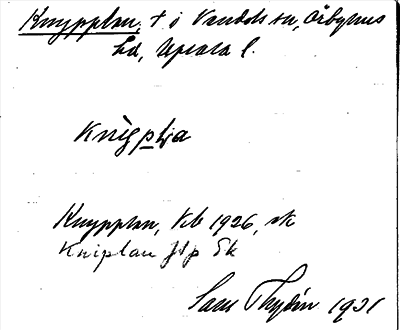 Knypplan, t i Vendels sn, Örbyhus
hd, Upsala l.
knìpl̥a
Knypplan, Kb 1926, ek
Kniplan Jfp Ek
Thydén 1931